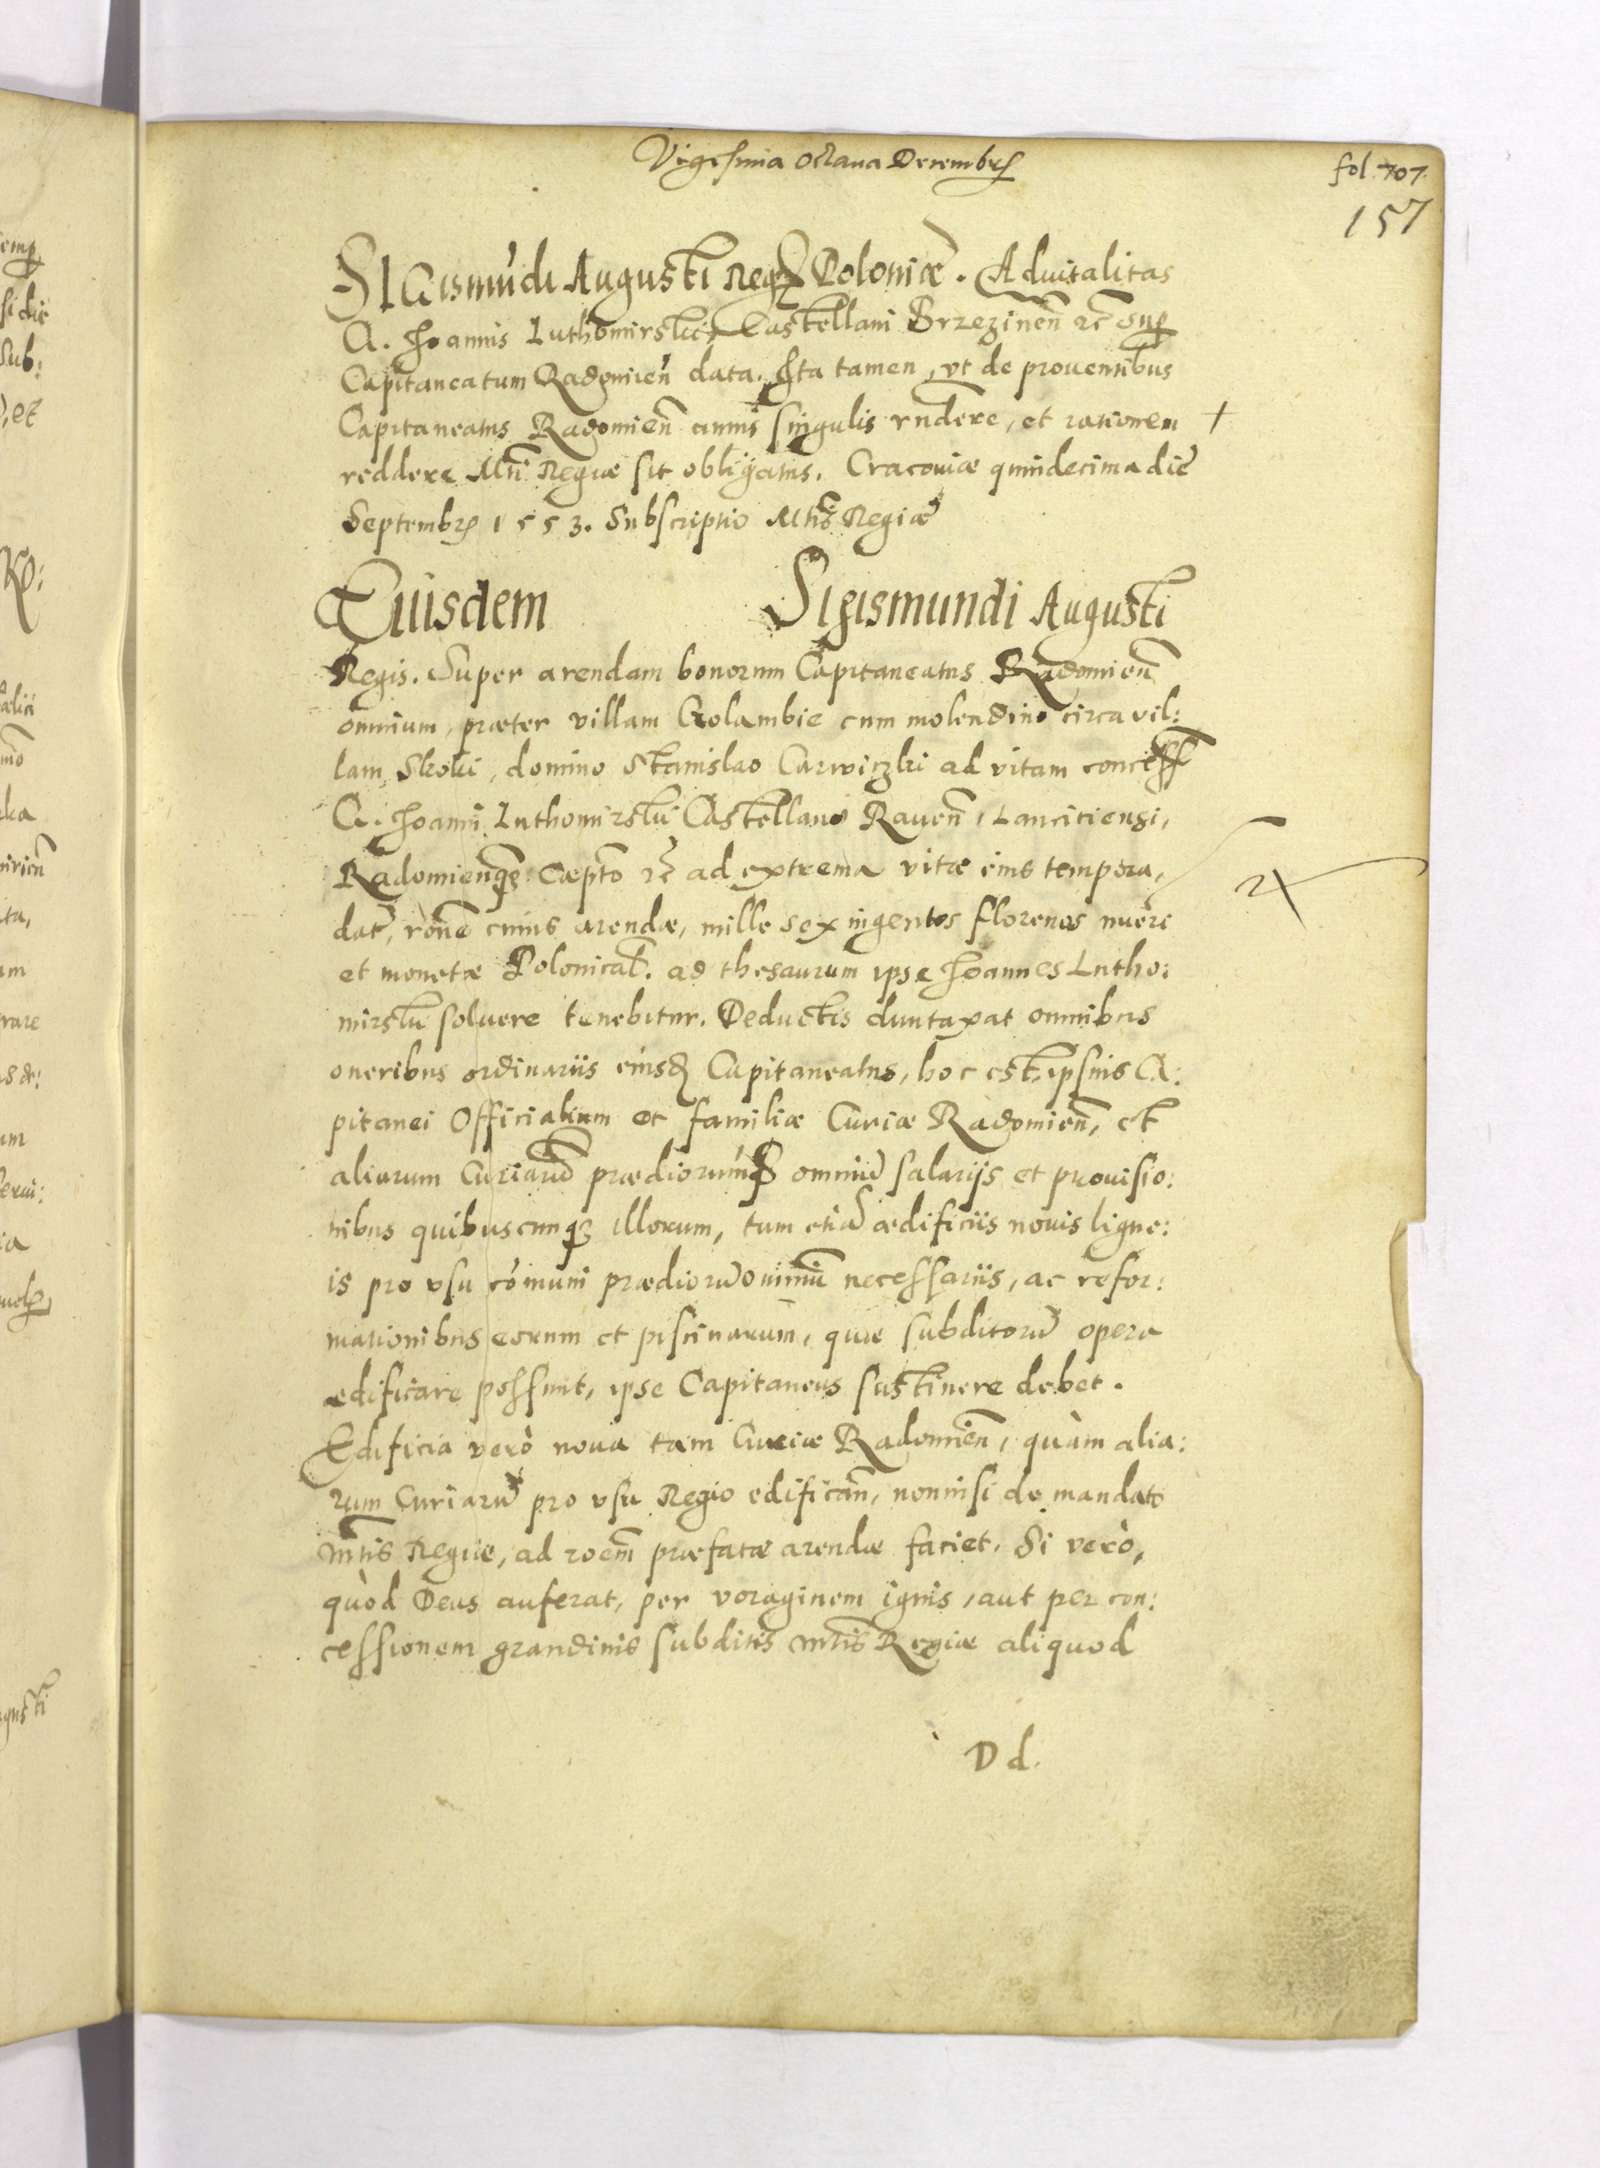 Vigesima octaua Decembr
fol. 707.
157
SIGismūdi Augusti Reg Poloniæ. Aduitalitas
G. Joannis Luthomirski, Castellani Brzezineñ etc sup
Capitaneatum Radomieñ data. Ita tamen, vt de prouentibus
Capitaneatus Radomieñ annis singulis rndere, et rationem +
reddere Mti Regiæ sit obligatus. Cracouiæ quindecima die
Septembr 1553. Subscriptio Mtis Regiæ
Eiusdem Sigismundi Augusti
Regis. Super arendam bonorum Capitaneatus Radomieñ
omnium, præter villam Golambie cum molendino circa vil:
lam Skoki, domino Stanislao Carwiczki ad vitam concess
G. Joanni Luthomirski Castellano Raueñ, Lanciciensi,
Radomienq3 Capto etc ad extrema vitæ eius tempora,
dat, rone cuius arendæ, mille sexingentos florenos nueri
et monetæ Polonical. ad thesaurum ipse Joannes Lutho:
mirski soluere tenebitur. Deductis duntaxat omnibus
oneribus ordinariis eiusd Capitaneatus, hoc est, ipsius Ca:
pitanei Officialium et familiæ Curiæ Radomieñ, et
aliarum Curiarū prædiorumq omniū salarijs et prouisio:
nibus quibuscunq3 illorum, tum etiā ædificiis nouis ligne:
is pro vsu cōmuni prædiorū omniū necessariis, ac refor:
mationibus eorum et piscinarum, quæ subditorū opera
ædificare possunt, ipse Capitaneus sustinere debet.
Edificia verò noua tam Curiæ Radomieñ, quàm alia:
rum Curiarū pro vsu Regio edificañ, nonnisi de mandato
Mtis Regiæ, ad roem præfatæ arendæ faciet. Si verò,
quòd Deus auferat, per voraginem ignis, aut per con:
cessionem grandinis subditis Mtis Regiæ aliquod
D d.